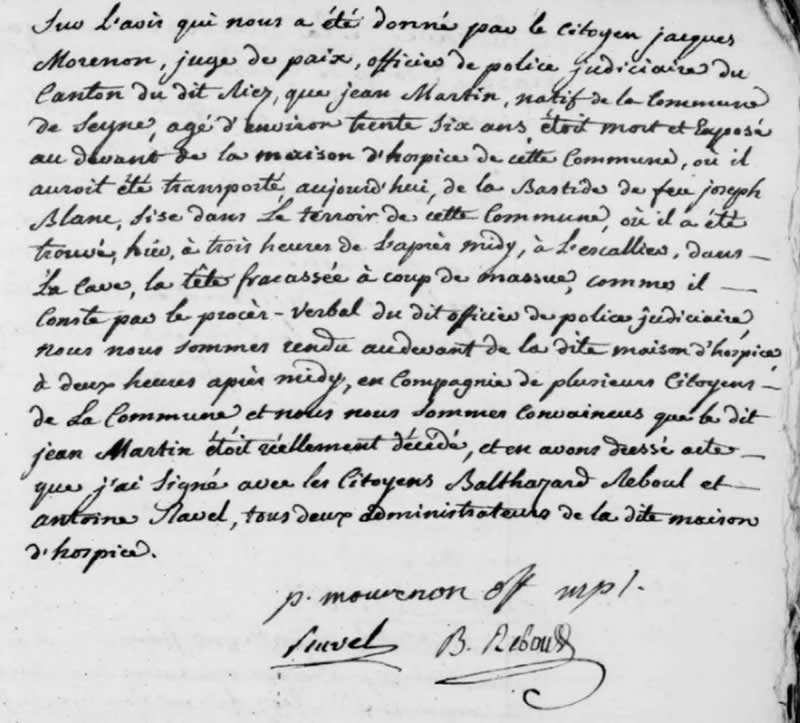 Sur l'avis qui nous a été donné par le Citoyen jacques
Morenon, juge de paix, officier de police judiciaire du
Canton du dit Riez, que jean Martin, natif de la Commune
de Seyne, agé d'environ trente Six ans, étoit mort et Exposé
au devant de la maison d'hospice de cette Commune, où il
auroit été transporté, aujourd'hui, de la Bastide de feu joseph
Blanc, Sise dans Le terroir de cette Commune, où il a été
trouvé, hier, à trois heures de L'après midy, à L'escallier, dans —
La Cave, la tête fracassée à coup de massue, comme il —
Conste par le procèr-verbal du dit officier de police judiciaire,
nous nous sommes rendu au devant de la dite maison d'hospice,
à deux heures après midy, en Compagnie de plusieurs Citoyens —
de La Commune et nous nous sommes convaincus que le dit
jean Martin étoit réellement décédé, et en avons dressé acte —
que j'ai Signé avec les Citoyens Balthazard Reboul et —
antoine Ravel, tous deux administrateurs de la dite maison
d'hospice.
p. mourenon off mpl.
Ravel B. Reboul